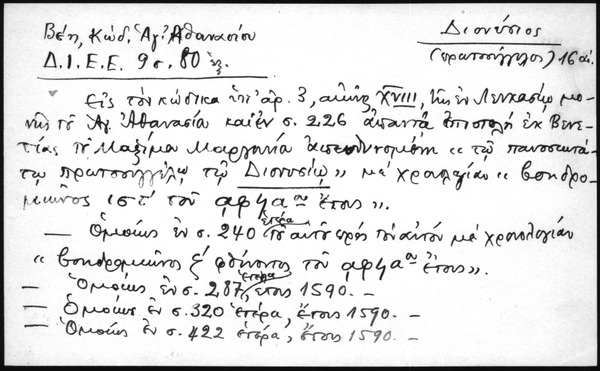 Βέη, Κώδ. Ἁγ. Ἀθανασίου
Διονύσιος
Δ.Ι.Ε.Ε. 9 σ. 80 ἑξ.
(πρωτοσύγγελος) 16 αἰ.
Εἰς τὸν κώδικα ὑπ' ἀρ. 3, αἰῶνος XVIII, τῆς ἐν Λευκασίῳ μο-
νῆς τοῦ Ἁγ. Ἀθανασίου καὶ ἐν σ. 226 ἀπαντᾷ ἐπιστολὴ ἐκ Βενε-
τίας τοῦ Μαξίμου Μαργουνίου ἀπευθυνομένη « τῷ πανοσιωτά-
τῳ πρωτοσυγγέλῳ τῷ Διονυσίῳ » μὲ χρονολογίαν « βοηδρο-
μιῶνος ιστ' τοῦ αφϟα ου ἔτους ».
— Ὁμοίως ἐν σ. 240 ἑτέρα τοῦ αὐτοῦ πρὸς τὸν αὐτὸν μὲ χρονολογίαν
« βοηδρομιῶνος ξ' φθίνοντος τοῦ αφϟα ου ἔτους ».
— Ὁμοίως ἐν σ. 287 ἑτέρα, ἔτους 1590. —
— Ὁμοίως ἐν σ. 320 ἑτέρα, ἔτους 1590. —
— Ὁμοίως ἐν σ. 422 ἑτέρα, ἔτους 1590. —